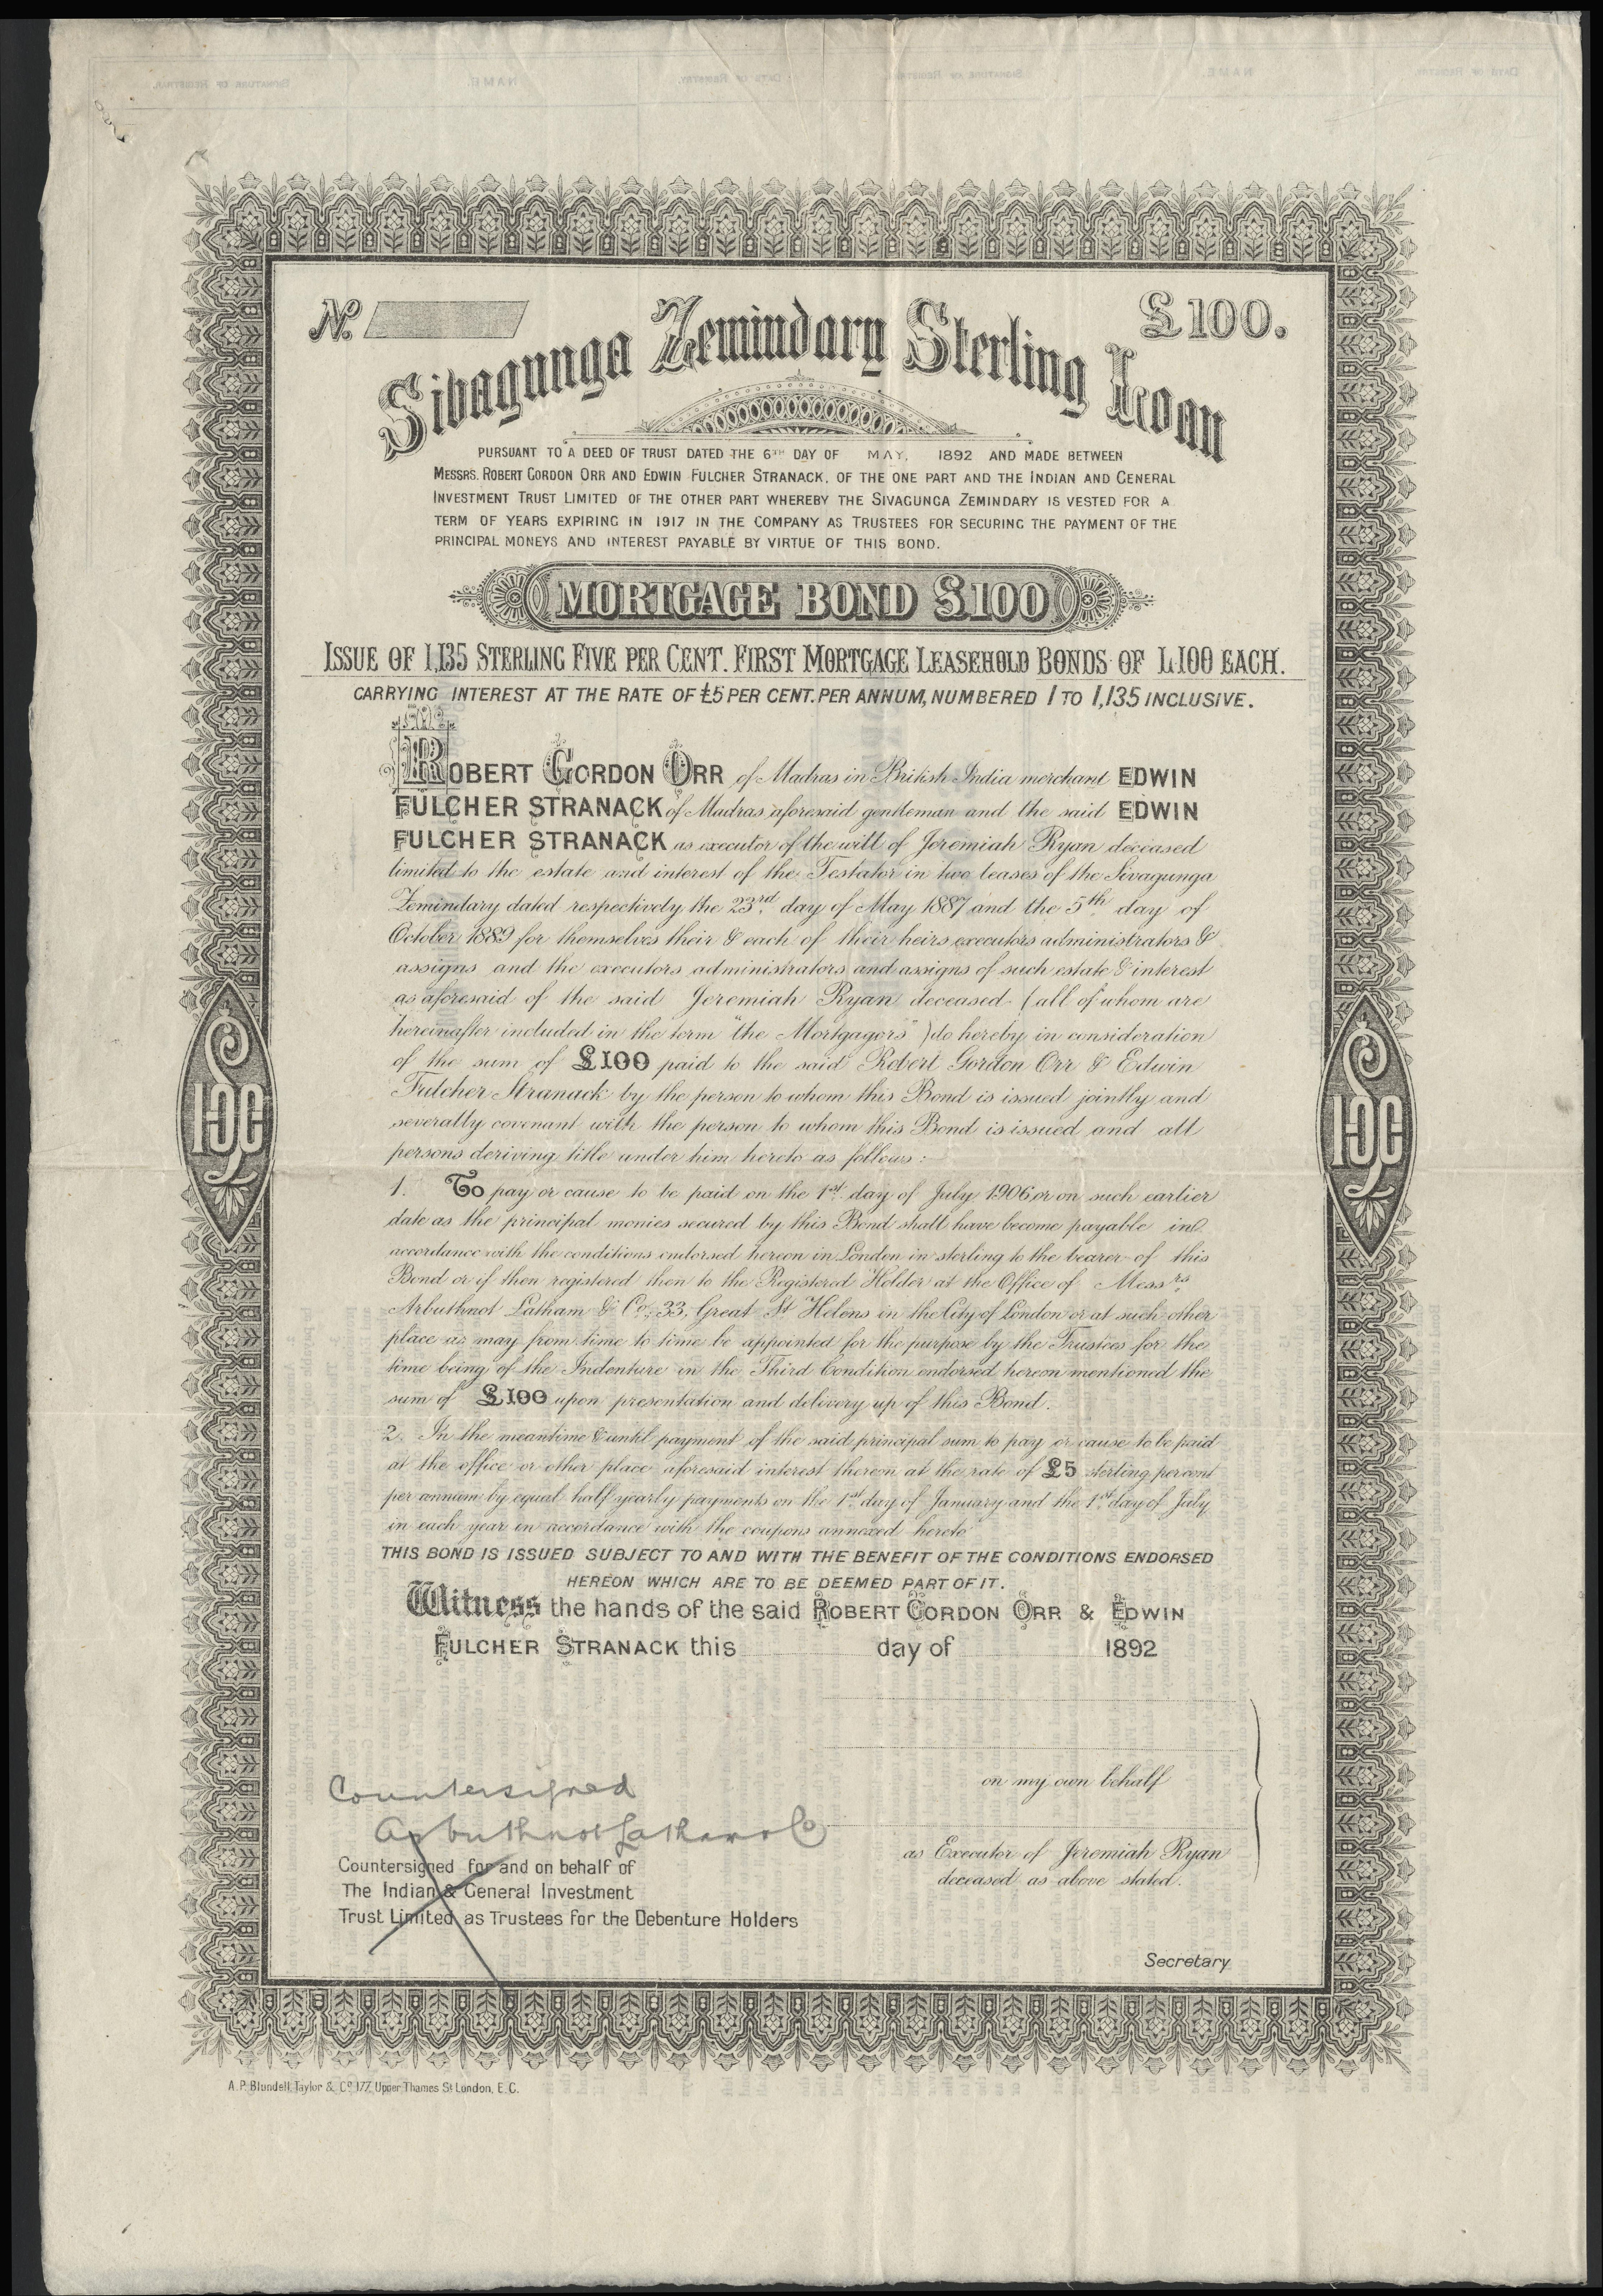 DATE OF REGISTRY. NAME. SIGNATURE OF REGISTRAR. DATE OF REGISTRY. NAME. SIGNATURE OF REGISTRAR.
No. £100.
Sivagunga Zemindary Sterling Loan
PURSUANT TO A DEED OF TRUST DATED THE 6TH DAY OF MAY, 1892 AND MADE BETWEEN
MESSRS. ROBERT GORDON ORR AND EDWIN FULCHER STRANACK, OF THE ONE PART AND THE INDIAN AND GENERAL
INVESTMENT TRUST LIMITED OF THE OTHER PART WHEREBY THE SIVAGUNGA ZEMINDARY IS VESTED FOR A
TERM OF YEARS EXPIRING IN 1917 IN THE COMPANY AS TRUSTEES FOR SECURING THE PAYMENT OF THE
PRINCIPAL MONEYS AND INTEREST PAYABLE BY VIRTUE OF THIS BOND.
MORTGAGE BOND £100
ISSUE OF 1,135 STERLING FIVE PER CENT. FIRST MORTGAGE LEASEHOLD BONDS OF £100 EACH.
CARRYING INTEREST AT THE RATE OF £5 PER CENT. PER ANNUM, NUMBERED 1 TO 1,135 INCLUSIVE.
ROBERT GORDON ORR of Madras in British India merchant EDWIN
FULCHER STRANACK of Madras aforesaid gentleman and the said EDWIN
FULCHER STRANACK as executor of the will of Jeremiah Ryan deceased
limited to the estate and interest of the Testator in two leases of the Sivagunga
Zemindary dated respectively the 23rd day of May 1887 and the 5th day of
October 1889 for themselves their & each of their heirs executors administrators &
assigns and the executors administrators and assigns of such estate & interest
as aforesaid of the said Jeremiah Ryan deceased (all of whom are
hereinafter included in the term "the Mortgagors") do hereby in consideration
of the sum of £100 paid to the said Robert Gordon Orr & Edwin
Fulcher Stranack by the person to whom this Bond is issued jointly and
severally covenant with the person to whom this Bond is issued and all
persons deriving title under him hereto as follows:—
1. To pay or cause to be paid on the 1st day of July 1906 or on such earlier
date as the principal monies secured by this Bond shall have become payable in
accordance with the conditions endorsed hereon in London in sterling to the bearer of this
Bond or if then registered then to the Registered Holder at the Office of Messrs
Arbuthnot Latham & Co., 33, Great St Helens in the City of London or at such other
place as may from time to time be appointed for the purpose by the Trustees for the
time being of the Indenture in the Third Condition endorsed hereon mentioned the
sum of £100 upon presentation and delivery up of this Bond.
2. In the meantime & until payment of the said principal sum to pay or cause to be paid
at the office or other place aforesaid interest thereon at the rate of £5 sterling percent
per annum by equal half yearly payments on the 1st day of January and the 1st day of July
in each year in accordance with the coupons annexed hereto
THIS BOND IS ISSUED SUBJECT TO AND WITH THE BENEFIT OF THE CONDITIONS ENDORSED
HEREON WHICH ARE TO BE DEEMED PART OF IT.
Witness the hands of the said ROBERT GORDON ORR & EDWIN
FULCHER STRANACK this day of 1892
on my own behalf
as Executor of Jeremiah Ryan
deceased as above stated.
Countersigned
Arbuthnot Latham & Co
Countersigned for and on behalf of
The Indian & General Investment
Trust Limited as Trustees for the Debenture Holders
Secretary
A. P. Blundell, Taylor & Co. 177, Upper Thames St London, E.C.
£100
£100